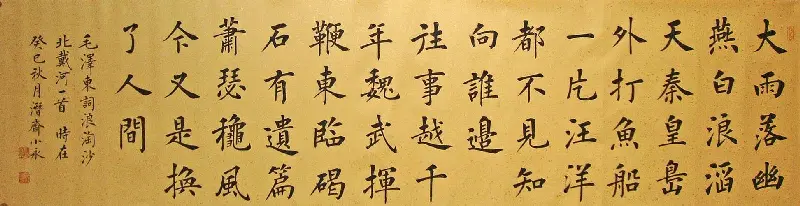 大雨落幽
燕白浪滔
天秦皇島
外打魚船
一片汪洋
都不見知
向誰邊
往事越千
年魏武揮
鞭東臨碣
石有遺篇
蕭瑟穐風
今又是換
了人間
毛澤東詞浪淘沙
北戴河一首 時在
癸巳秋月潛齋小永